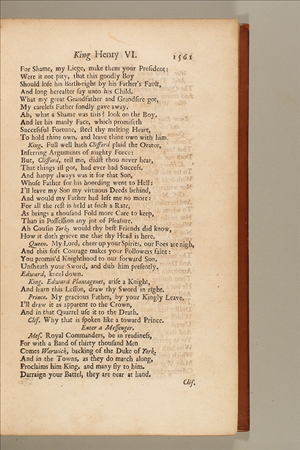 King Henry VI. 1561
For Shame, my Liege, make them your President:
Were it not pity, that this goodly Boy
Should lose his Birth-right by his Father's Fault,
And long hereafter say unto his Child,
What my great Grandfather and Grandsire got,
My careless Father fondly gave away.
Ah, what a Shame was this! look on the Boy,
And let his manly Face, which promiseth
Successful Fortune, steel thy melting Heart,
To hold thine own, and leave thine own with him.
King. Full well hath Clifford plaid the Orator,
Inferring Arguments of mighty Force:
But, Clifford, tell me, didst thou never hear,
That things ill got, had ever bad Success.
And happy always was it for that Son,
Whose Father for his hoording went to Hell:
I'll leave my Son my virtuous Deeds behind,
And would my Father had left me no more:
For all the rest is held at such a Rate,
As brings a thousand Fold more Care to keep,
Than in Possession any jot of Pleasure.
Ah Cousin York, would thy best Friends did know,
How it doth grieve me that thy Head is here.
Queen. My Lord, cheer up your Spirits, our Foes are nigh,
And this soft Courage makes your Followers faint:
You promis'd Knighthood to our forward Son,
Unsheath your Sword, and dub him presently.
Edward, kneel down.
King. Edward Plantagenet, arise a Knight,
And learn this Lesson, draw thy Sword in right.
Prince. My gracious Father, by your Kingly Leave,
I'll draw it as apparent to the Crown,
And in that Quarrel use it to the Death.
Clif. Why that is spoken like a toward Prince.
Enter a Messenger.
Mes. Royal Commanders, be in readiness,
For with a Band of thirty thousand Men
Comes Warwick, backing of the Duke of York;
And in the Towns, as they do march along,
Proclaims him King, and many fly to him.
Darraign your Battel, they are near at hand.
Clif.